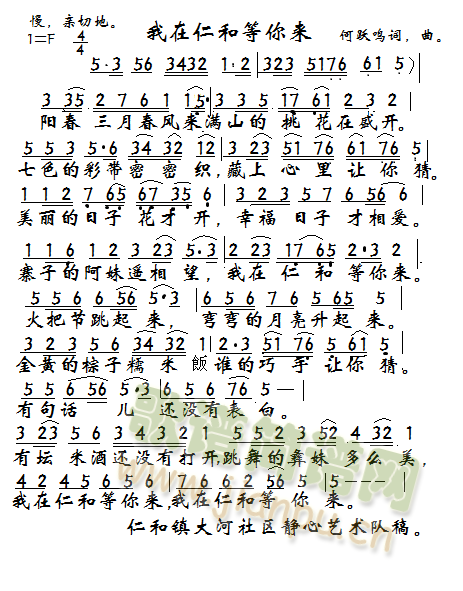 慢，亲切地。
1=F 4/4 我在仁和等你来 何跃鸣词，曲。
5·3 56 3432 1·2 | 323 5176 61 5 )
3 35 2 7 6 1 15· | 3 3 5 17 61 2 3 2 |
阳春 三月春风来满山的 挑 花在盛开。
5 5 3 5·6 34 32 12 | 3 23 51 76 61 76 5 |
七色的彩带密 密 织,藏上 心 里 让 你 猜。
1 1 2 7 65 67 35 6 | 3 2 3 5 7 6 56 6 |
美丽的日子 花才 开，幸福 日子 才相爱。
1 1 6 1 2 3 23 5·3 | 2 23 17 65 2·3 2 |
寨子的阿妹遥相 望，我在 仁 和 等你来。
5 5 6 6 56 5·3 | 6 5 6 7 6 5 65 5 |
火把节跳起 来， 弯弯的月亮升起 来。
3 2 3 5 6 34 32 1 | 2·3 51 76 5 61 5 |
金黄的棕子糯 米 飯谁的巧 手 让你 猜。
5 5 6 56 5·3 | 6 5 6 76 5 — |
有句话 儿 还没有表 白。
3 23 5 6 3 4 3 2 1 | 5 5 2 3 52 4 32 1
有坛 米酒还没有打开,跳舞的彝妹 多么 美，
4 2 4 5 6 5 6 | 7 6 6 2 56 5 | 5 — — — |
我在仁和等你来,我在仁和等你 来。
仁和镇大河社区静心艺术队稿。